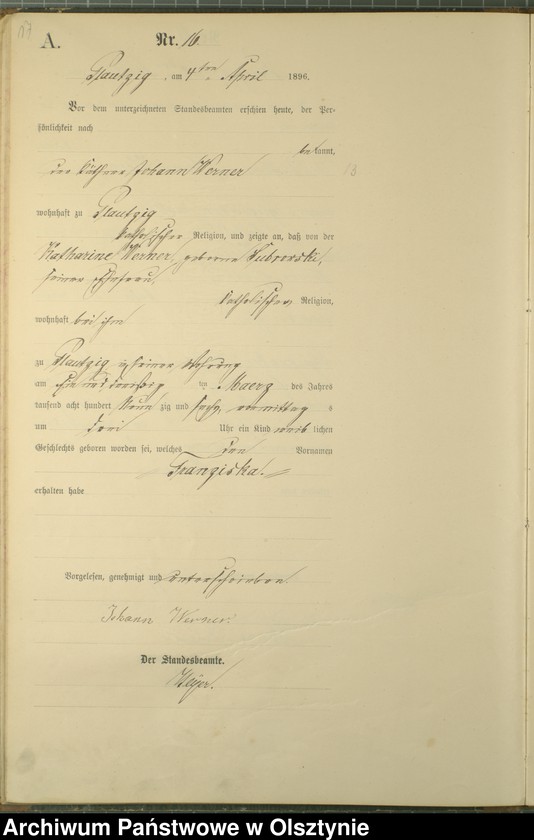 17
A.
Nr. 16.
Plautzig, am 4ten April 1896.
Vor dem unterzeichneten Standesbeamten erschien heute, der Per-
sönlichkeit nach
bekannt,
der Käthner Johann Werner
13
wohnhaft zu Plautzig
katholischer Religion, und zeigte an, daß von der
Katharine Werner, geborene
seiner Ehefrau
katholischer Religion,
wohnhaft bei ihm
zu Plautzig in seiner Wohnung
am ein und dreißig ten Maerz des Jahres
tausend acht hundert Neun zig und sechs, vormittag s
um drei Uhr ein Kind weib lichen
Geschlechts geboren worden sei, welches den Vornamen
Franziska.
erhalten habe
Vorgelesen, genehmigt und unterschrieben
Johann Werner.
Der Standesbeamte.
Archiwum Państwowe w Olsztynie